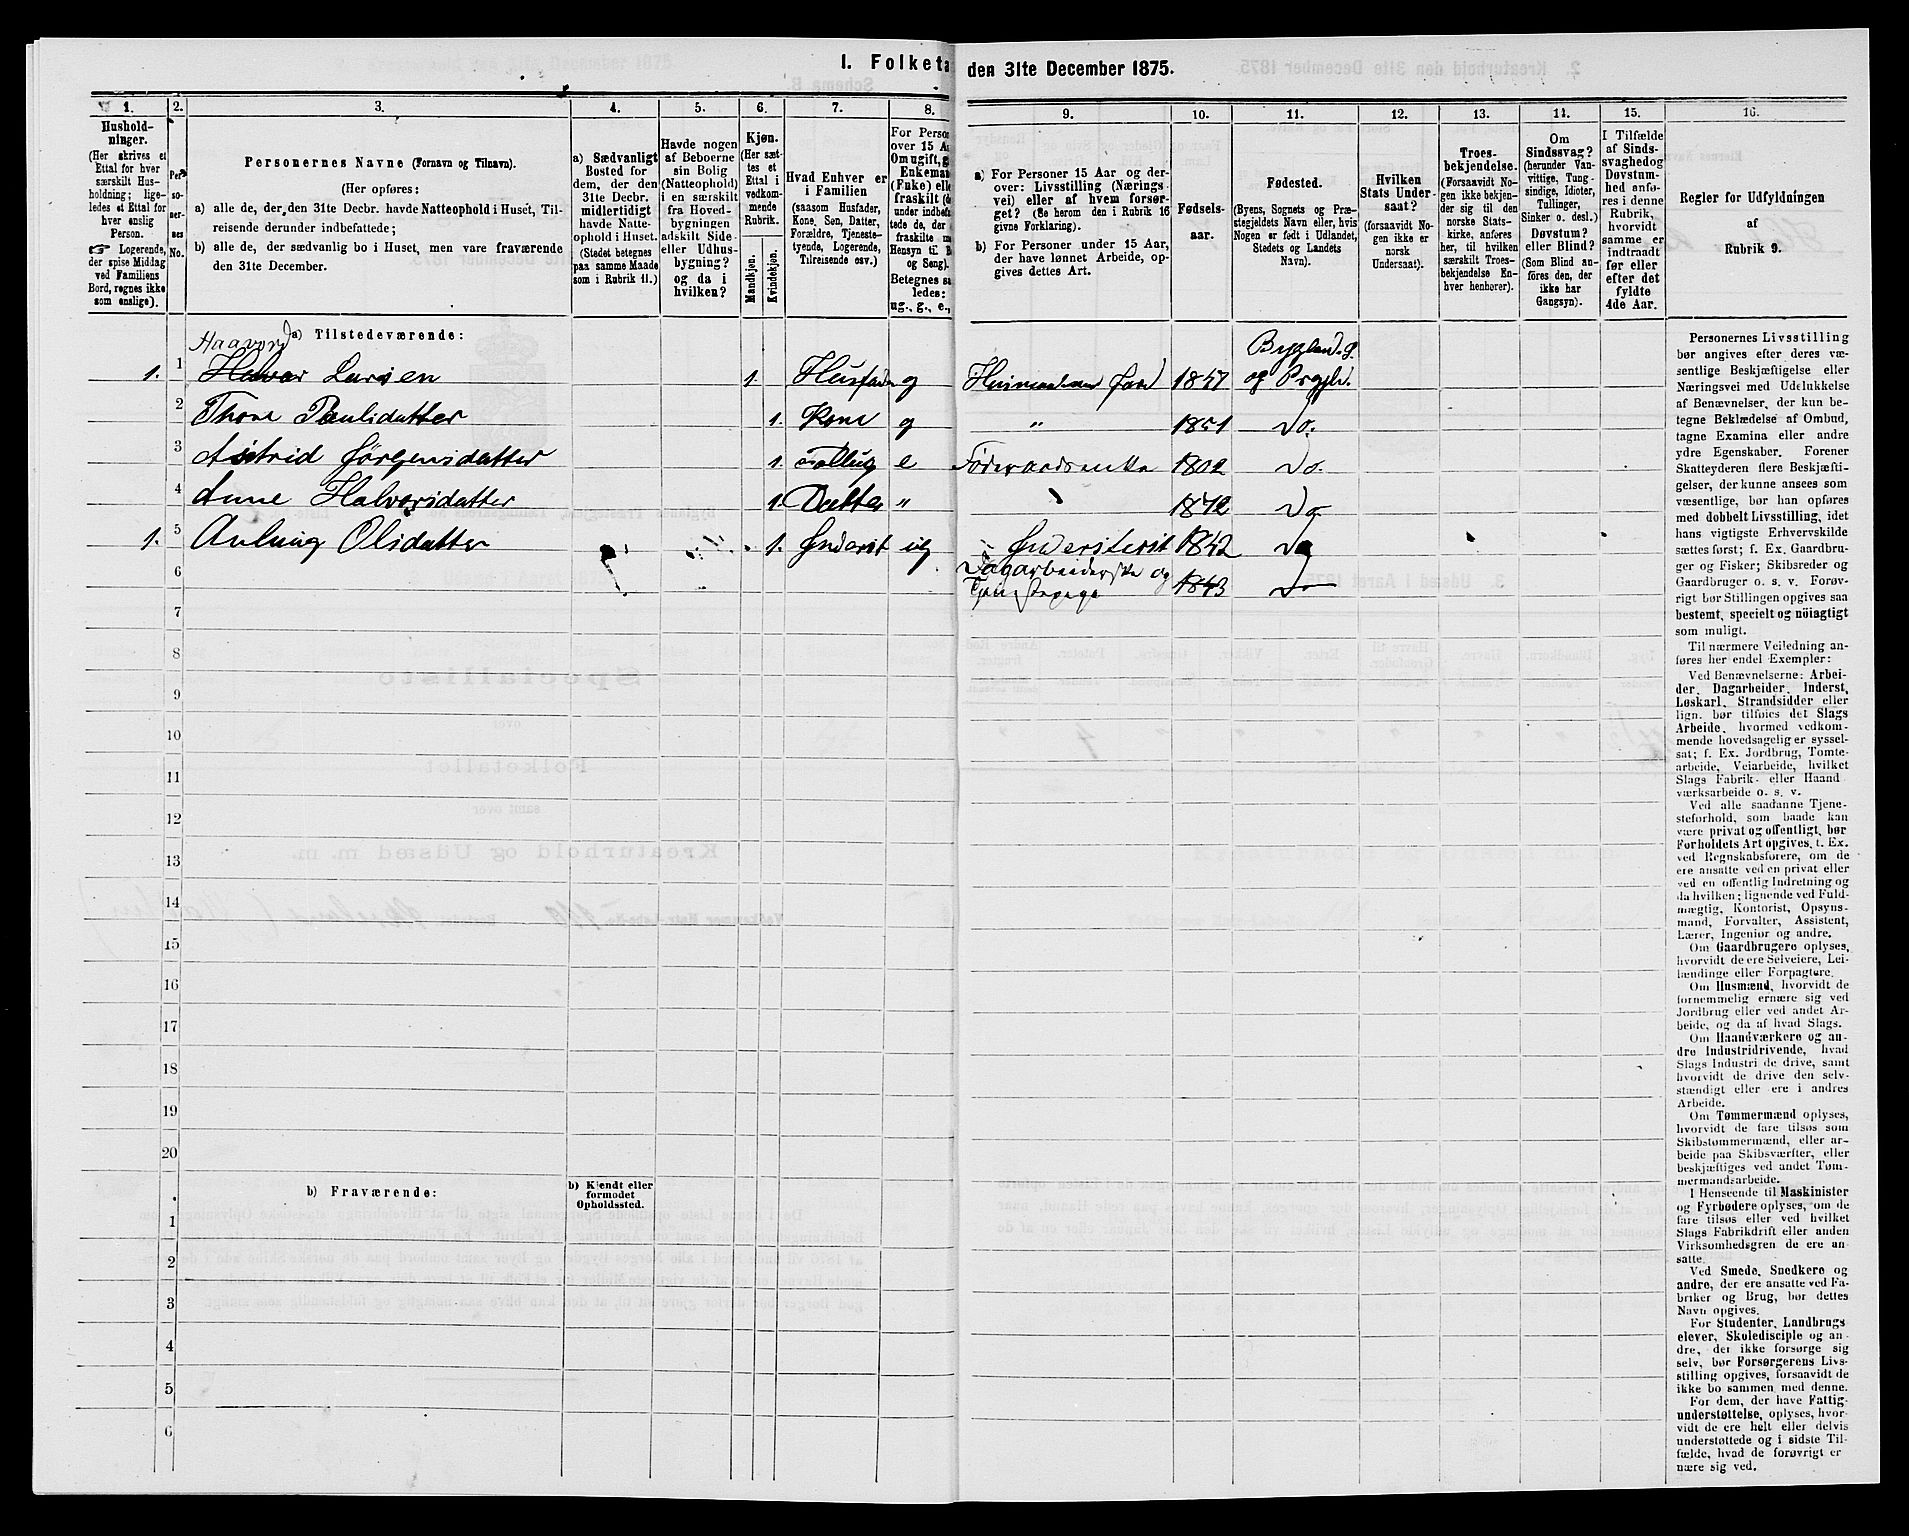 I. Folketa den 31te December 1875.
1. 2. 3. 4. 5. 6. 7. 8. 9. 10. 11. 12. 13. 14. 15. 16.
Hushold-
ninger.
(Her skrives et
Ettal for hver
særskilt Hus-
holdning; lige-
ledes et Ettal for
hver enslig
Person.
☞ Logerende,
der spise Middag
ved Familiens
Bord, regnes ikke
som enslige).
Per-
so-
ner-
nes
No.
Personernes Navne (Fornavn og Tilnavn).
(Her opføres:
a) alle de, der den 31te Decbr. havde Natteophold i Huset, Til-
reisende derunder indbefattede;
b) alle de, der sædvanlig bo i Huset, men vare fraværende
den 31te December.
a) Sædvanligt
Bosted for
dem, der den
31te Decbr.
midlertidigt
havde Natte-
ophold i Huset.
(Stedet betegnes
paa samme Maade
som i Rubrik 11.)
Havde nogen
af Beboerne
sin Bolig
(Natteophold)
i en særskilt
fra Hoved-
bygningen
adskilt Side-
eller Udhus-
bygning?
og da i
hvilken?
Kjøn.
(Her sæt-
tes et
Ettal i
vedkom-
mende
Rubrik.
Mandkjøn.
Kvindekjøn.
Hvad Enhver er
i Familien
(saasom Husfader,
Kone, Søn, Datter,
Forældre, Tjeneste-
tyende, Logerende,
Tilreisende osv.)
For Person
over 15 A
Om ugift, g
Enkeman
(Fuke) elle
fraskilt (d
under indbef
tede de, der
fraskilte m
Hensyn til B
og Seng).
Betegnes sa
ledes:
ug., g., e.,
a) For Personer 15 Aar og der-
over: Livsstilling (Nærings-
vei) eller af hvem forsør-
get? (Se herom den i Rubrik 16
givne Forklaring).
b) For Personer under 15 Aar,
der have lønnet Arbeide, op-
gives dettes Art.
Fødsels-
aar.
Fødested.
(Byens, Sognets og Præ-
stegjeldets Navn eller, hvis
Nogen er født i Udlandet,
Stedets og Landets
Navn).
Hvilken
Stats Under-
saat?
(forsaavidt No-
gen ikke er
norsk
Undersaat).
Troes-
bekjendelse.
(Forsaavidt No-
gen ikke bekjen-
der sig til den
norske Stats-
kirke, anføres
her, til hvilken
særskilt Troes-
bekjendelse En-
hver henhører).
Om
Sindssvag?
(herunder Van-
vittige, Tung-
sindige, Idioter,
Tullinger,
Sinker o. desl.)
Døvstum?
eller Blind?
(Som Blind an-
føres den, der
ikke har
Gangsyn).
I Tilfælde
af Sinds-
svaghed og
Døvstum-
hed anfø-
res i denne
Rubrik,
hvorvidt
samme er
indtraadt
før eller
efter det
fyldte
4de Aar.
Regler for Udfyldningen
af
Rubrik 9.
a) Tilstedeværende:
Haavord
1. 1 Halvor Larsen 1. Husfader g Husmand 1847 Bygland S. og Prgjld.
2 Thone Paulsdatter 1. Kone g " 1851 Do.
3 Astrid Jørgensdatter 1. e Føderaadsenke 1802 Do.
4 Anne Halvorsdatter 1. Datter " 1872 Do
1. 5 Aslaug Olsdatter 1. Inderst ug Inderst 1842 Do
6 Dagarbeiderske og 1843 Do
7
8
9
10
11
12
13
14
15
16
17
18
19
20
b) Fraværende:
b) Kjendt eller
formodet
Opholdssted.
1
2
3
4
5
6
Personernes Livsstilling
bør angives efter deres væ-
sentlige Beskjæftigelse eller
Næringsvei med Udelukkelse
af Benævnelser, der kun be-
tegne Beklædelse af Ombud,
tagne Examina eller andre
ydre Egenskaber. Forener
Skatteyderen flere Beskjæfti-
gelser, der kunne ansees som
væsentlige, bør han opføres
med dobbelt Livsstilling, idet
hans vigtigste Erhvervskilde
sættes først; f. Ex. Gaardbru-
ger og Fisker; Skibsreder og
Gaardbruger o. s. v. Forøv-
rigt bør Stillingen opgives saa
bestemt, specielt og nøiagtigt
som muligt.
Til nærmere Veiledning an-
føres her endel Exempler:
Ved Benævnelserne: Arbei-
der, Dagarbeider, Inderst,
Løskarl, Strandsidder eller
lign. bør tilføies det Slags
Arbeide, hvormed vedkom-
mende hovedsagelig er syssel-
sat; f. Ex. Jordbrug, Tomte-
arbeide, Veiarbeide, hvilket
Slags Fabrik- eller Haand-
værksarbeide o. s. v.
Ved alle saadanne Tjene-
steforhold, som baade kan
være privat og offentligt, bør
Forholdets Art opgives, f. Ex.
ved Regnskabsførere, om de
ere ansatte ved en privat eller
ved en offentlig Indretning og
da hvilken; lignende ved Fuld-
mægtig, Kontorist, Opsyns-
mand, Forvalter, Assistent,
Lærer, Ingeniør og andre.
Om Gaardbrugere oplyses,
hvorvidt de ere Selveiere, Lei-
lændinge eller Forpagtere.
Om Husmænd, hvorvidt de
fornemmelig ernære sig ved
Jordbrug eller ved andet Ar-
beide, og da af hvad Slags.
Om Haandværkere og an-
dre Industridrivende, hvad
Slags Industri de drive, samt
hvorvidt de drive den selv-
stændigt eller ere i andres
Arbeide.
Om Tømmermænd oplyses,
hvorvidt de fare tilsøs som
Skibstømmermænd, eller ar-
beide paa Skibsværfter, eller
beskjæftiges ved andet Tøm-
mermandsarbeide.
I Henseende til Maskinister
og Fyrbødere oplyses, om de
fare tilsøs eller ved hvilket
Slags Fabrikdrift eller anden
Virksomhedsgren de ere an-
satte.
Ved Smede, Snedkere og
andre, der ere ansatte ved Fa-
briker og Brug, bør dettes
Navn opgives.
For Studenter, Landbrugs-
elever, Skoledisciple og an-
dre, der ikke forsørge sig
selv, bør Forsørgerens Livs-
stilling opgives, forsaavidt de
ikke bo sammen med denne.
For dem, der have Fattig-
understøttelse, oplyses, hvor-
vidt de ere helt eller delvis
understøttede og i sidste Til-
fælde, hvad de forøvrigt er-
nære sig ved.